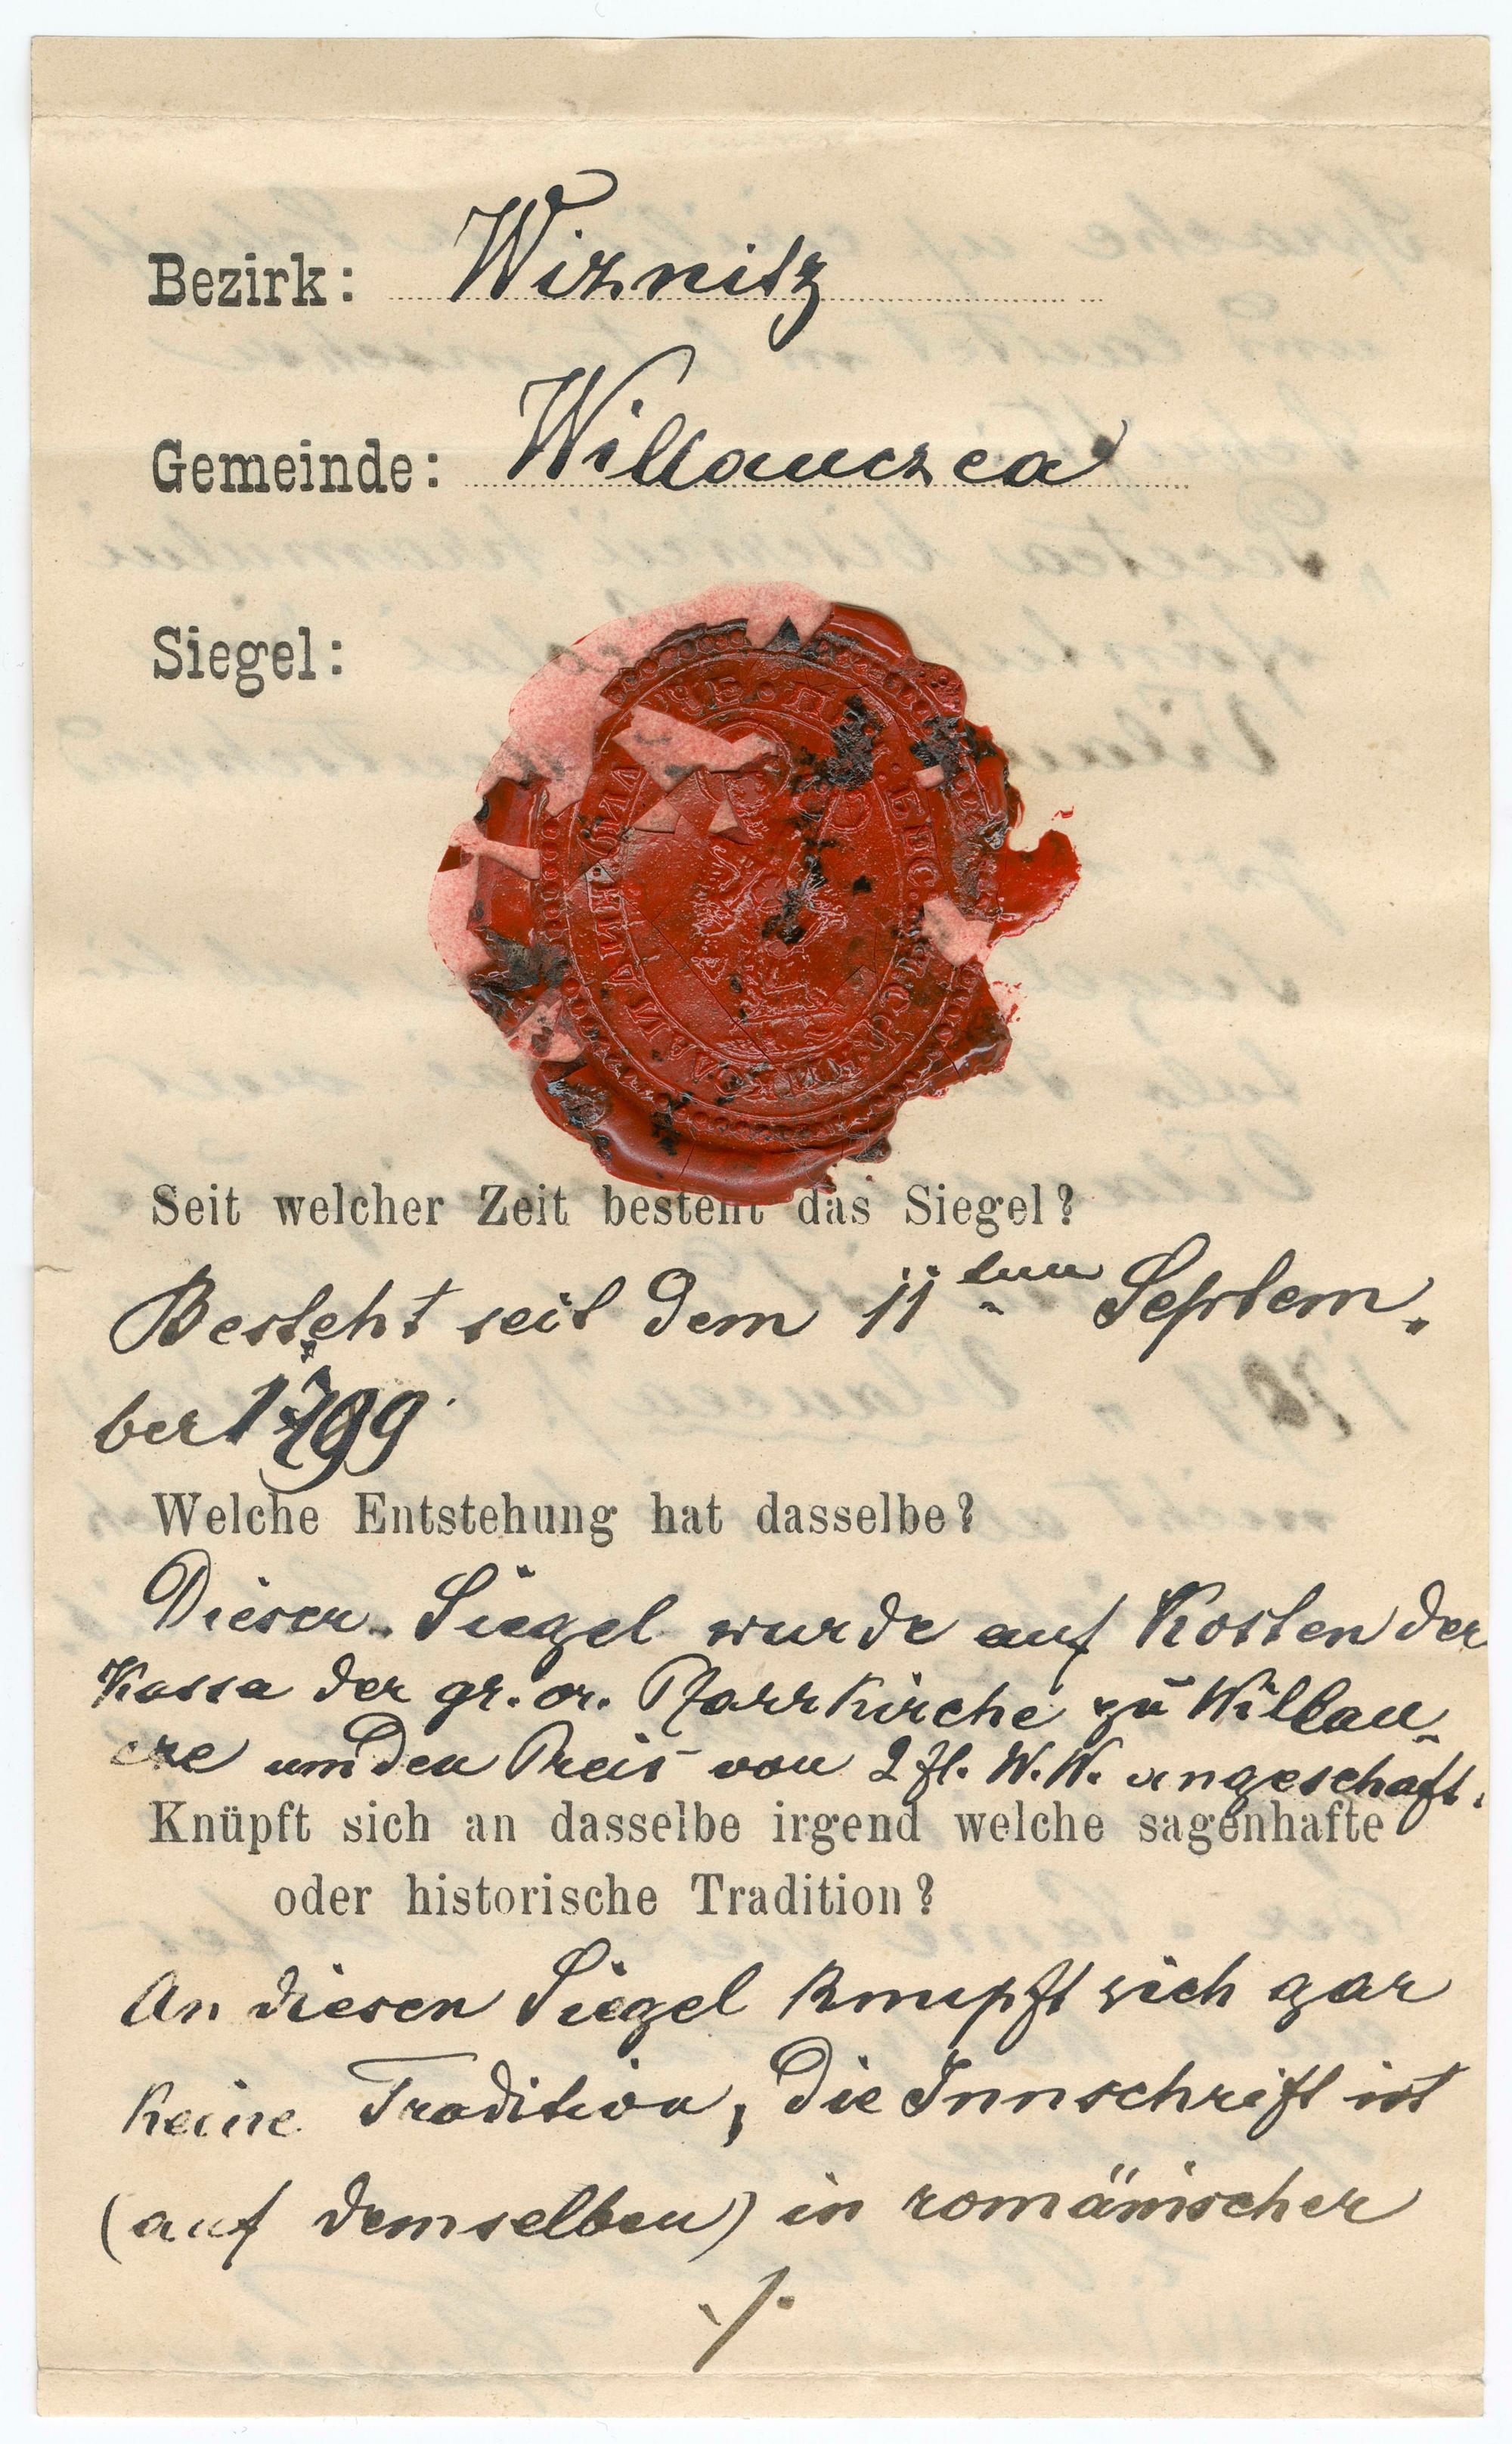 Bezirk: Wiznitz
Gemeinde: Willauczea
Siegel:
Seit welcher Zeit besteht das Siegel?
Besteht seit dem 11ten Septem-
ber 1799.
Welche Entstehung hat dasselbe?
Dieser Siegel wurde auf Kosten der
Kassa der gr. or. Pfarrkirche zu Willau-
cze um den Preis von 2 fl. W. W. angeschaft.
Knüpft sich an dasselbe irgend welche sagenhafte
oder historische Tradition?
An diesen Siegel knupft sich gar
keine Tradition, die Innschrift ist
(auf demselben) in romänischer
./.